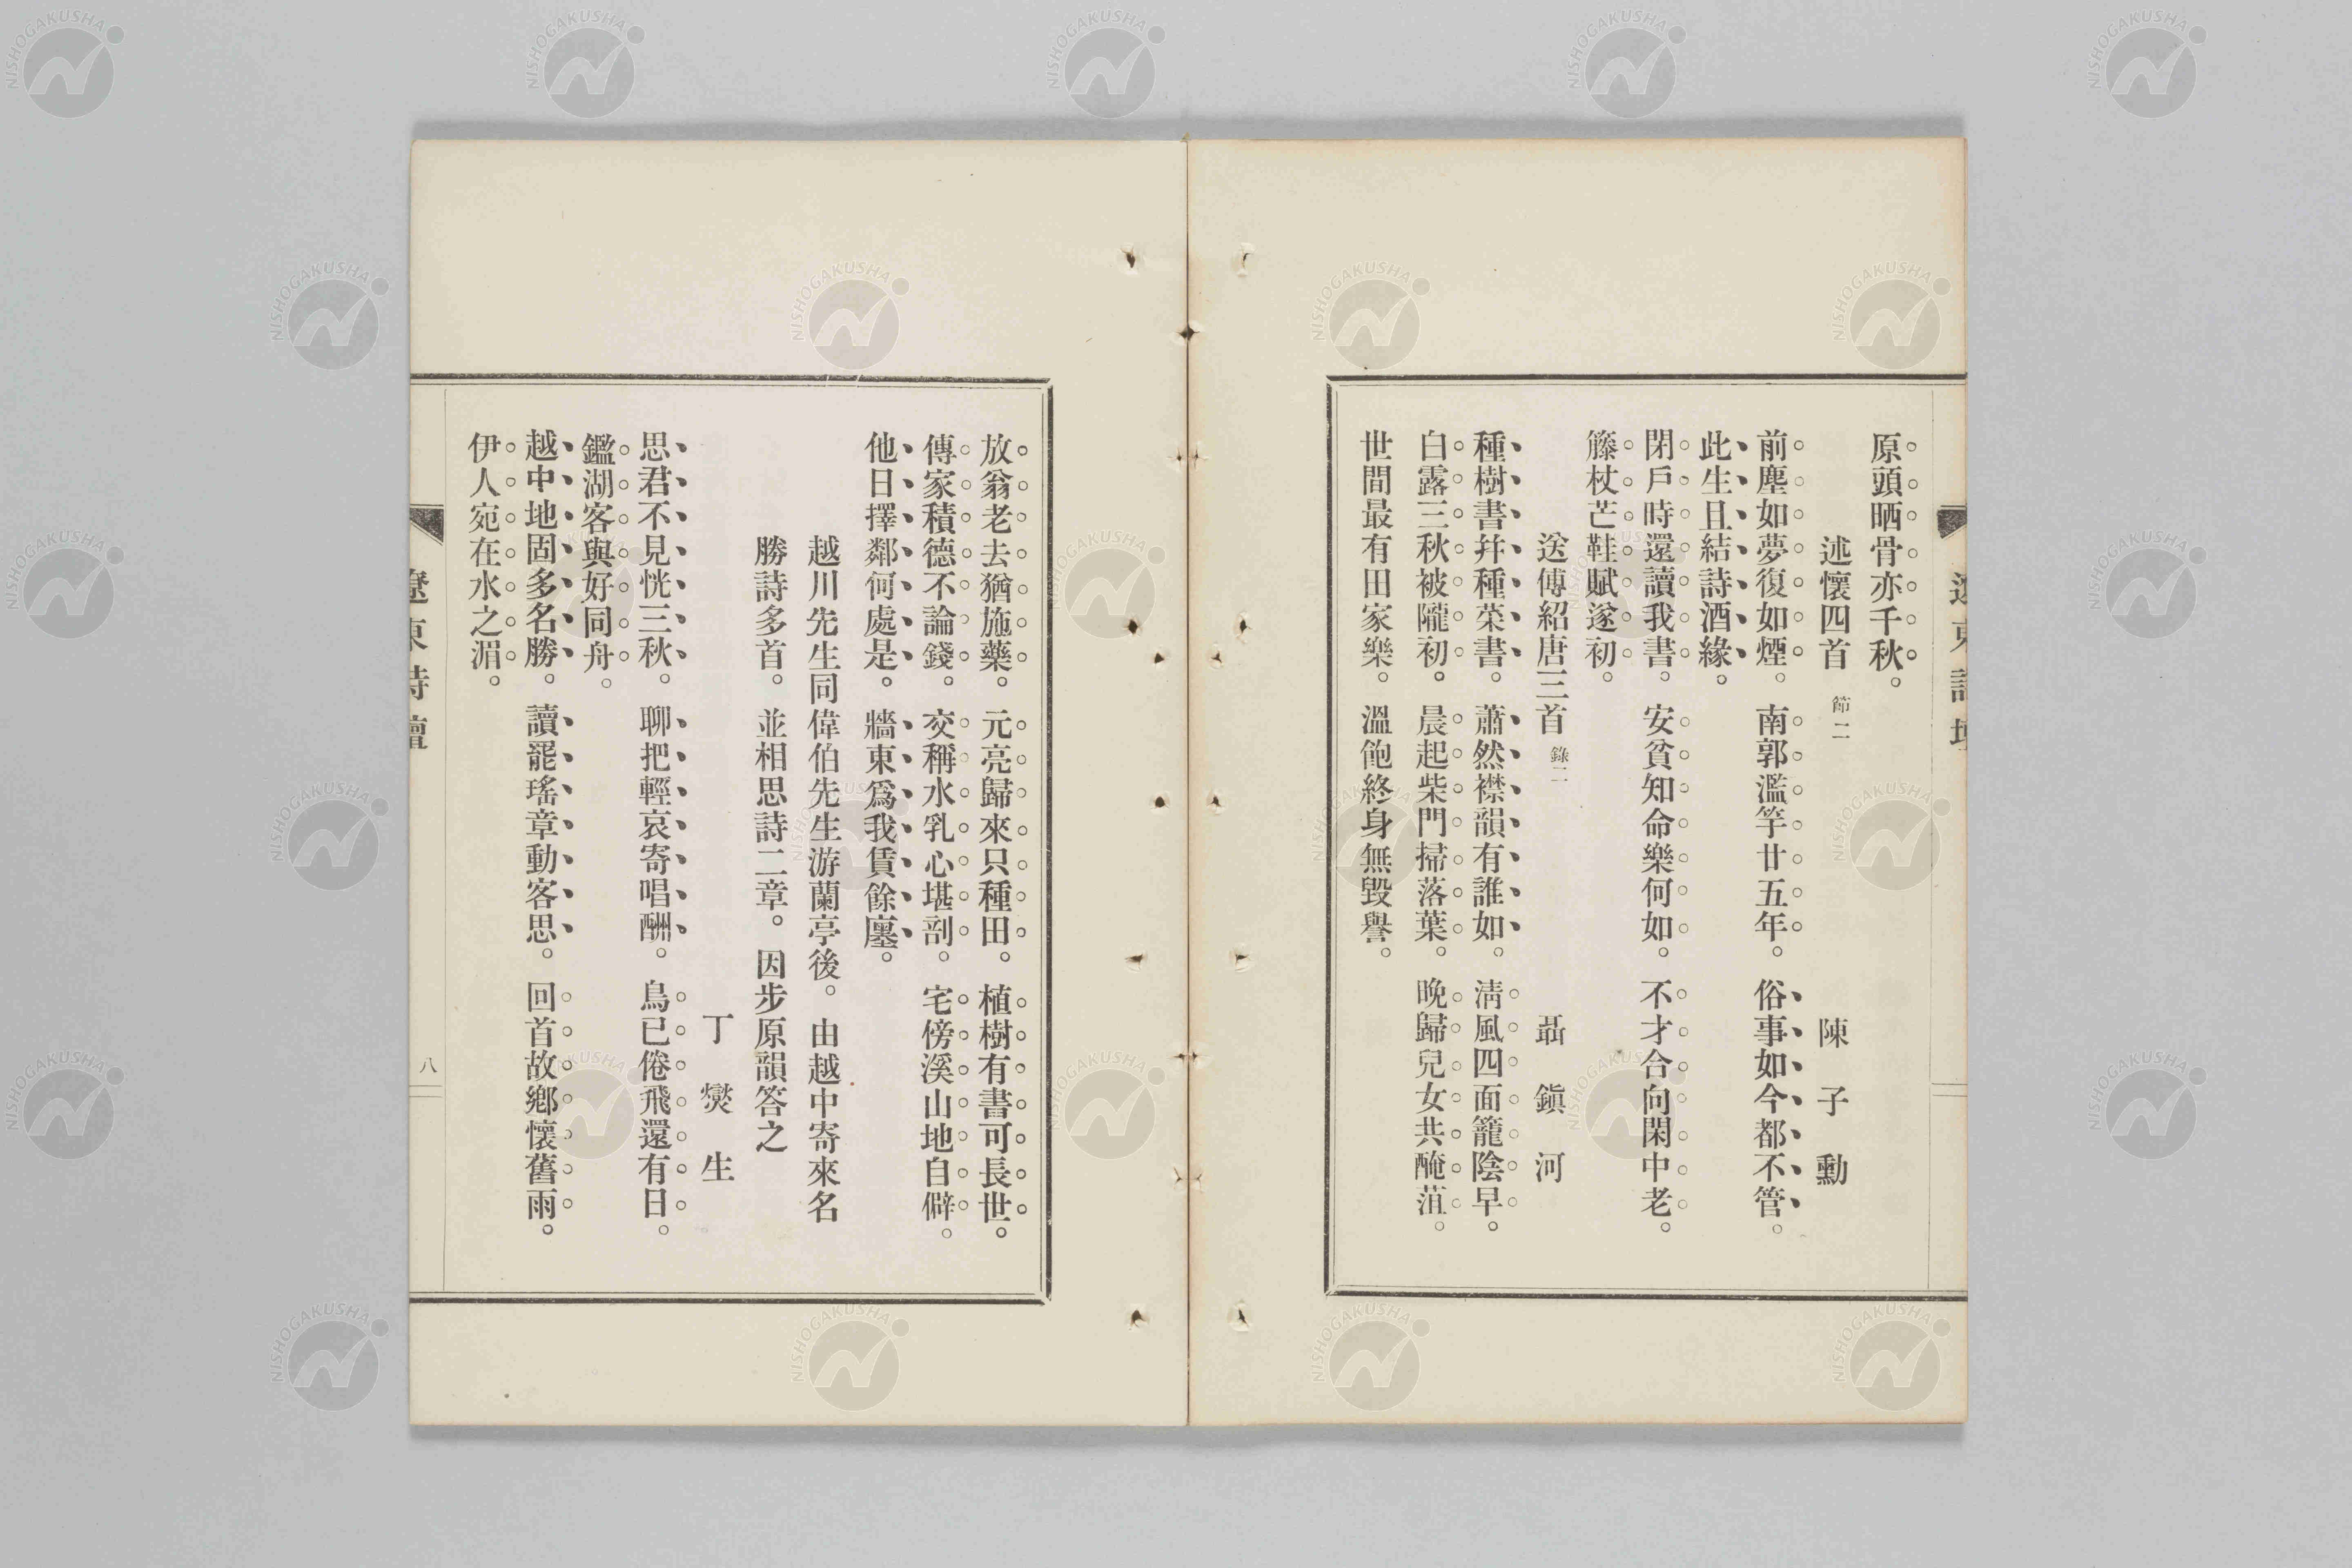 原頭晒骨亦千秋。
述懷四首 節二 陳子勳
前塵如夢復如煙。南郭濫竽廿五年。俗事如今都不管。
此生且結詩酒緣。
閉戶時還讀我書。安貧知命樂何如。不才合向閑中老。
籐杖芒鞋賦遂初。
送傅紹唐三首 錄二 聶鎭河
種樹書幷種菜書。蕭然襟韻有誰如。淸風四面籠陰早。
白露三秋被隴初。晨起柴門掃落葉。晚歸兒女共醃菹。
世間最有田家樂。溫飽終身無毀譽。
放翁老去猶施藥。元亮歸來只種田。植樹有書可長世。
傳家積德不論錢。交稱水乳心堪剖。宅傍溪山地自僻。
他日擇鄰何處是。牆東爲我賃餘廛。
越川先生同偉伯先生游蘭亭後。由越中寄來名
勝詩多首。並相思詩二章。因步原韻答之
丁爕生
思君不見恍三秋。聊把輕哀寄唱酬。鳥已倦飛還有日。
鑑湖客與好同舟。
越中地固多名勝。讀罷瑤章動客思。回首故鄕懷舊雨。
伊人宛在水之湄。
遼東詩壇
八
NISHOGAKUSHA